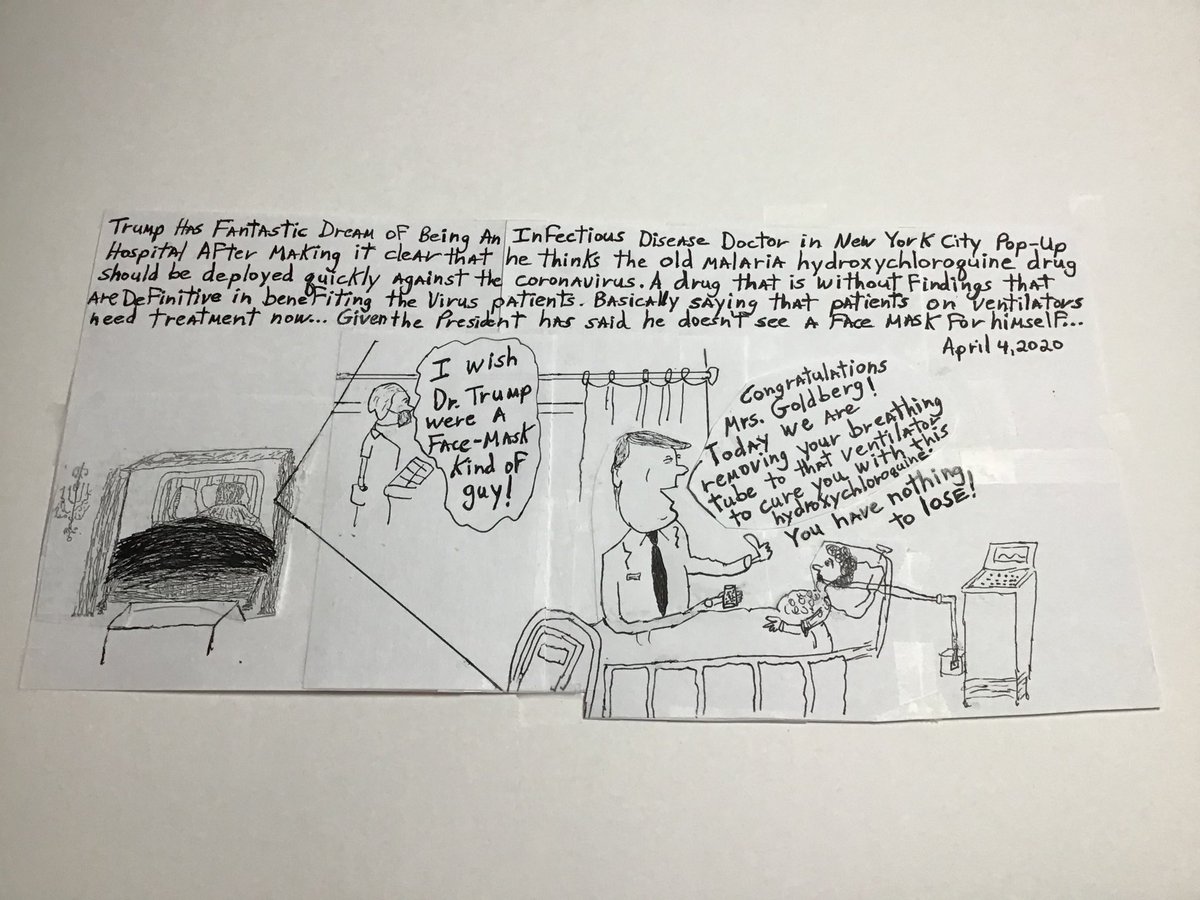 Trump Has Fantastic Dream of Being An Infectious Disease Doctor in New York City Pop-Up
Hospital After Making it clear that he thinks the old malaria hydroxychloroquine drug
should be deployed quickly against the coronavirus. A drug that is without findings that
are definitive in benefiting the virus patients. Basically saying that patients on ventilators
need treatment now... Given the President has said he doesn't see a face mask for himself...
April 4, 2020
I wish
Dr. Trump
were a
Face-Mask
kind of
guy!
Congratulations
Mrs. Goldberg!
Today we are
removing your breathing
tube to that ventilator
to cure you with this
hydroxychloroquine.
You have nothing
to lose!